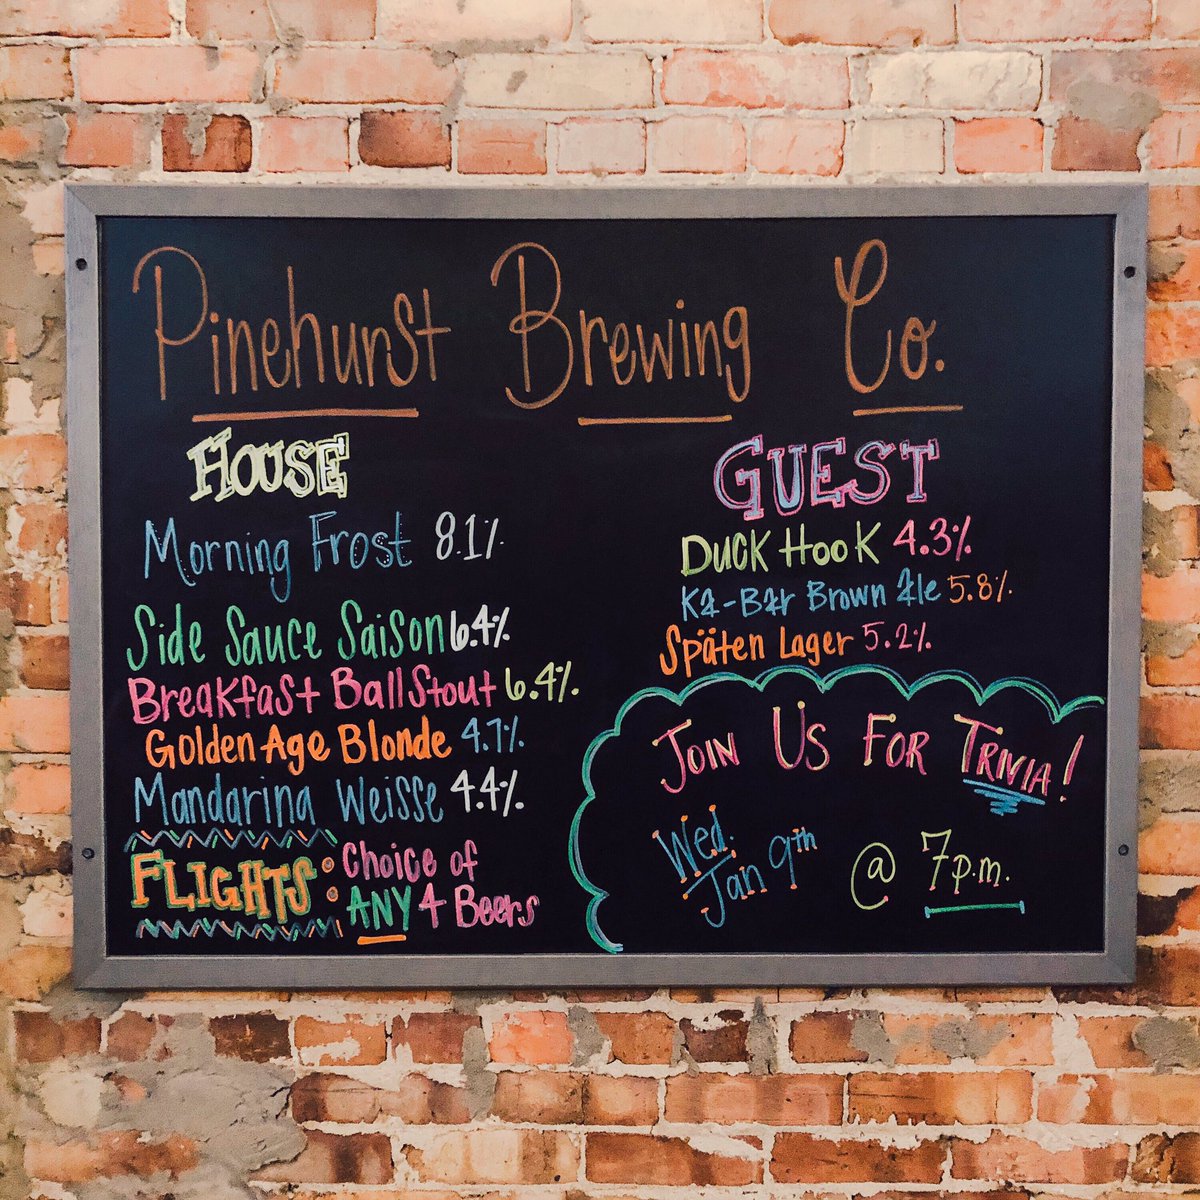 Pinehurst Brewing Co.
HOUSE
Morning Frost 8.1%
Side Sauce Saison 6.4%
Breakfast Ball Stout 6.4%
Golden Age Blonde 4.7%
Mandarina Weisse 4.4%
FLIGHTS: Choice of
ANY 4 Beers
GUEST
Duck Hook 4.3%
Ka-Bar Brown Ale 5.8%
Späten Lager 5.2%
Join Us For Trivia!
Wed.
Jan 9th @ 7p.m.